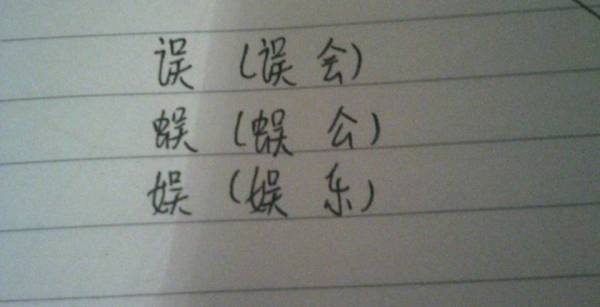 误（误会）
蜈（蜈公）
娱（娱乐）